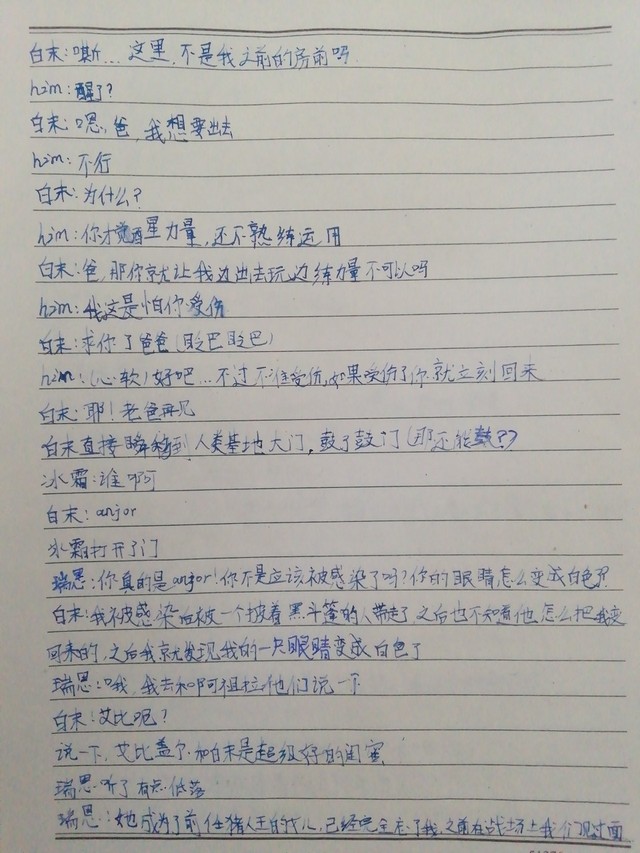 白末:嘶...这里,不是我之前的房前吗
him:醒了?
白末:嗯,爸,我想要出去
him:不行
白末:为什么?
him:你才觉醒星力量,还不熟练运用
白末:爸,那你就让我边出去玩,边练力量不可以吗
him:我这是怕你受伤
白末:求你了爸爸(眨巴眨巴)
him:(心软)好吧...不过不准受伤,如果受伤了你就立刻回来
白末:耶!老爸再见
白末直接瞬移到人类基地大门,鼓了鼓门(那还能鼓??)
冰霜:谁啊
白末:anjor
冰霜打开了门
瑞思:你真的是anjor!你不是应该被感染了吗?你的眼睛怎么变成白色??
白末:我被感染后被一个披着黑斗篷的人带走了之后也不知道他怎么把我变
回来的,之后我就发现我的一只眼睛变成白色了
瑞思:哦,我去和阿祖拉他们说一下
白末:艾比呢?
说一下,艾比盖尔和白末是超级好的闺蜜
瑞思听了有点低落
瑞思:她成为了前任猪人王的女儿,已经完全忘了我,之前在战场上我们见过面